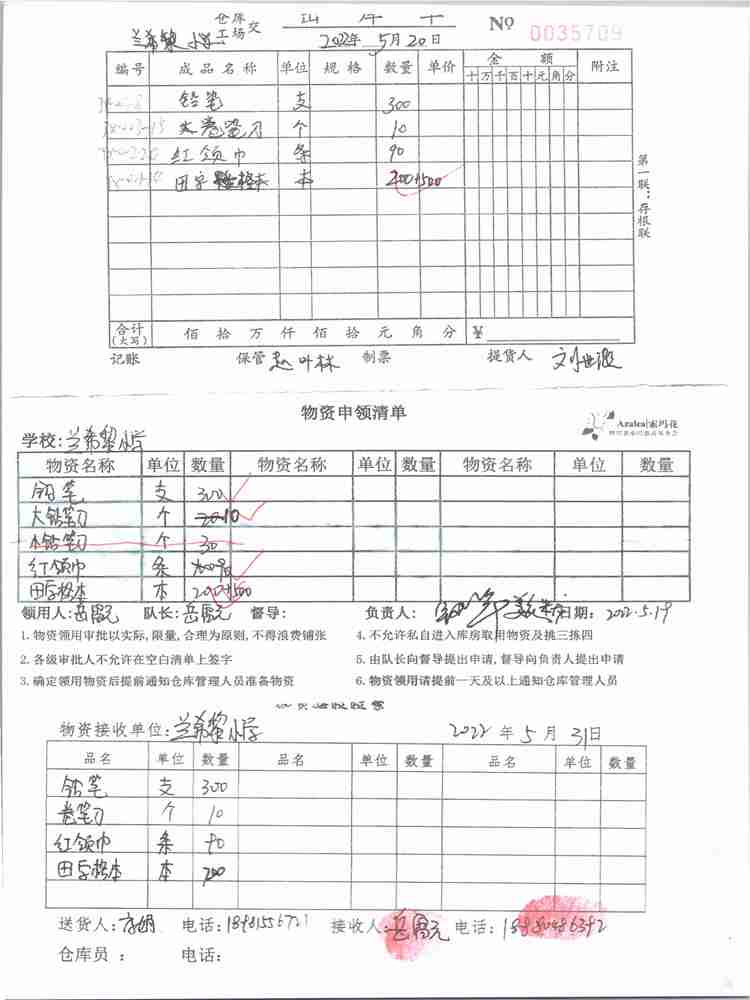 仓库
工场 交
兰希黎小学
2022年 5月20日
№ 0035709
编号 成品名称 单位 规格 数量 单价 金额 附注
十 万 千 百 十 元 角 分
铅笔 支 300
大卷笔刀 个 10
红领巾 条 90
田字格本 本 200+500
第一联：存根联
合计(大写) 佰 拾 万 仟 佰 拾 元 角 分 ¥
记账 保管 赵叶林 制票 提货人
物资申领清单
Azalea|索玛花
学校:兰希黎小学
物资名称 单位 数量 物资名称 单位 数量 物资名称 单位 数量
铅笔 支 300
大钻笔刀 个 20 10
小钻笔刀 个 30
红领巾 条 90
田字格本 本 200+500
领用人: 队长: 督导: 负责人: 日期: 2022.5.19
1.物资领用审批以实际,限量,合理为原则,不得浪费铺张
4.不允许私自进入库房取用物资及挑三拣四
2.各级审批人不允许在空白清单上签字
5.由队长向督导提出申请,督导向负责人提出申请
3.确定领用物资后提前通知仓库管理人员准备物资
6.物资领用请提前一天及以上通知仓库管理人员
物资接收单位:兰希黎小学 2022 年 5 月 31日
品名 单位 数量 品名 单位 数量 品名 单位 数量
铅笔 支 300
卷笔刀 个 10
红领巾 条 90
田字格本 本 700
送货人: 电话: 接收人: 电话:
仓库员 : 电话: